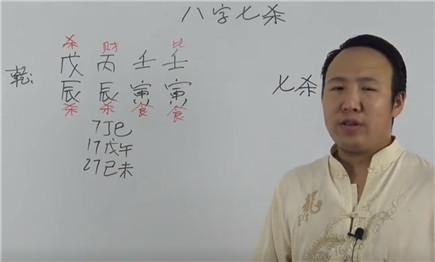 八字七杀
杀 财 比
乾: 戊 丙 壬 壬
辰 辰 寅 寅
杀 杀 食 食
七杀
7丁巳
17戊午
27己未
龍